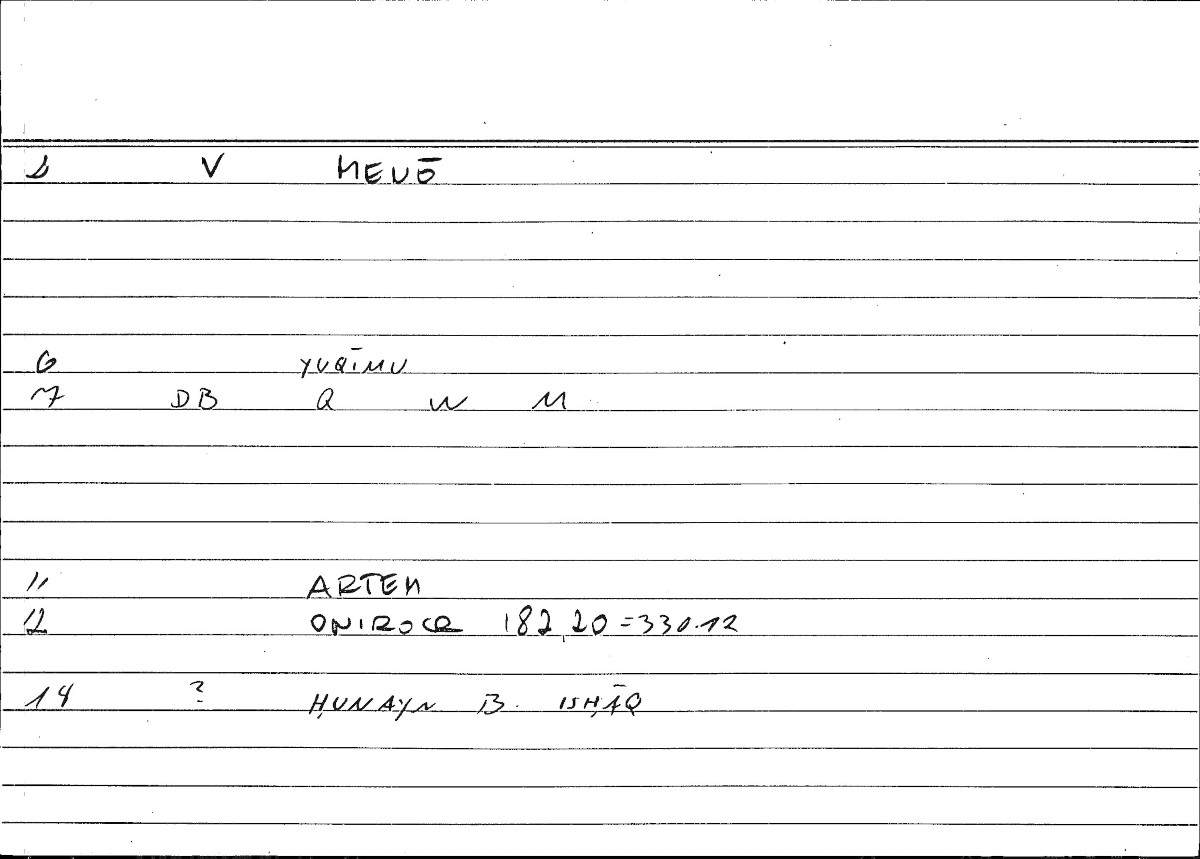 1 V MENŌ
6 YUQĪMU
7 DB Q W M
11 ARTEM
12 ONIROCR 182,20=330.12
14 ? ḤUNAYN B. ISḤĀQ